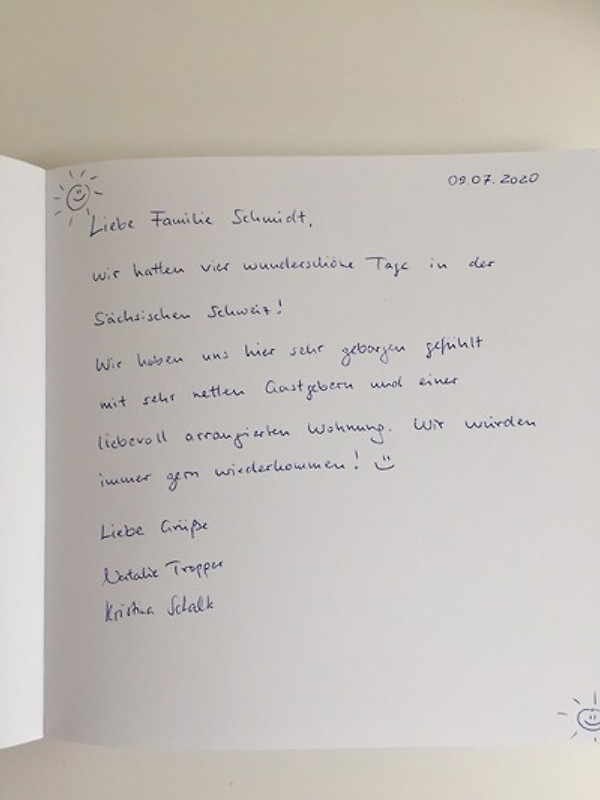 09.07.2020
Liebe Familie Schmidt,
wir hatten vier wunderschöne Tage in der
Sächsischen Schweiz!
Wir haben uns hier sehr geborgen gefühlt
mit sehr netten Gastgebern und einer
liebevoll arrangierten Wohnung. Wir würden
immer gern wiederkommen!
Liebe Grüße
Natalie Tropper
Kristina Schalk